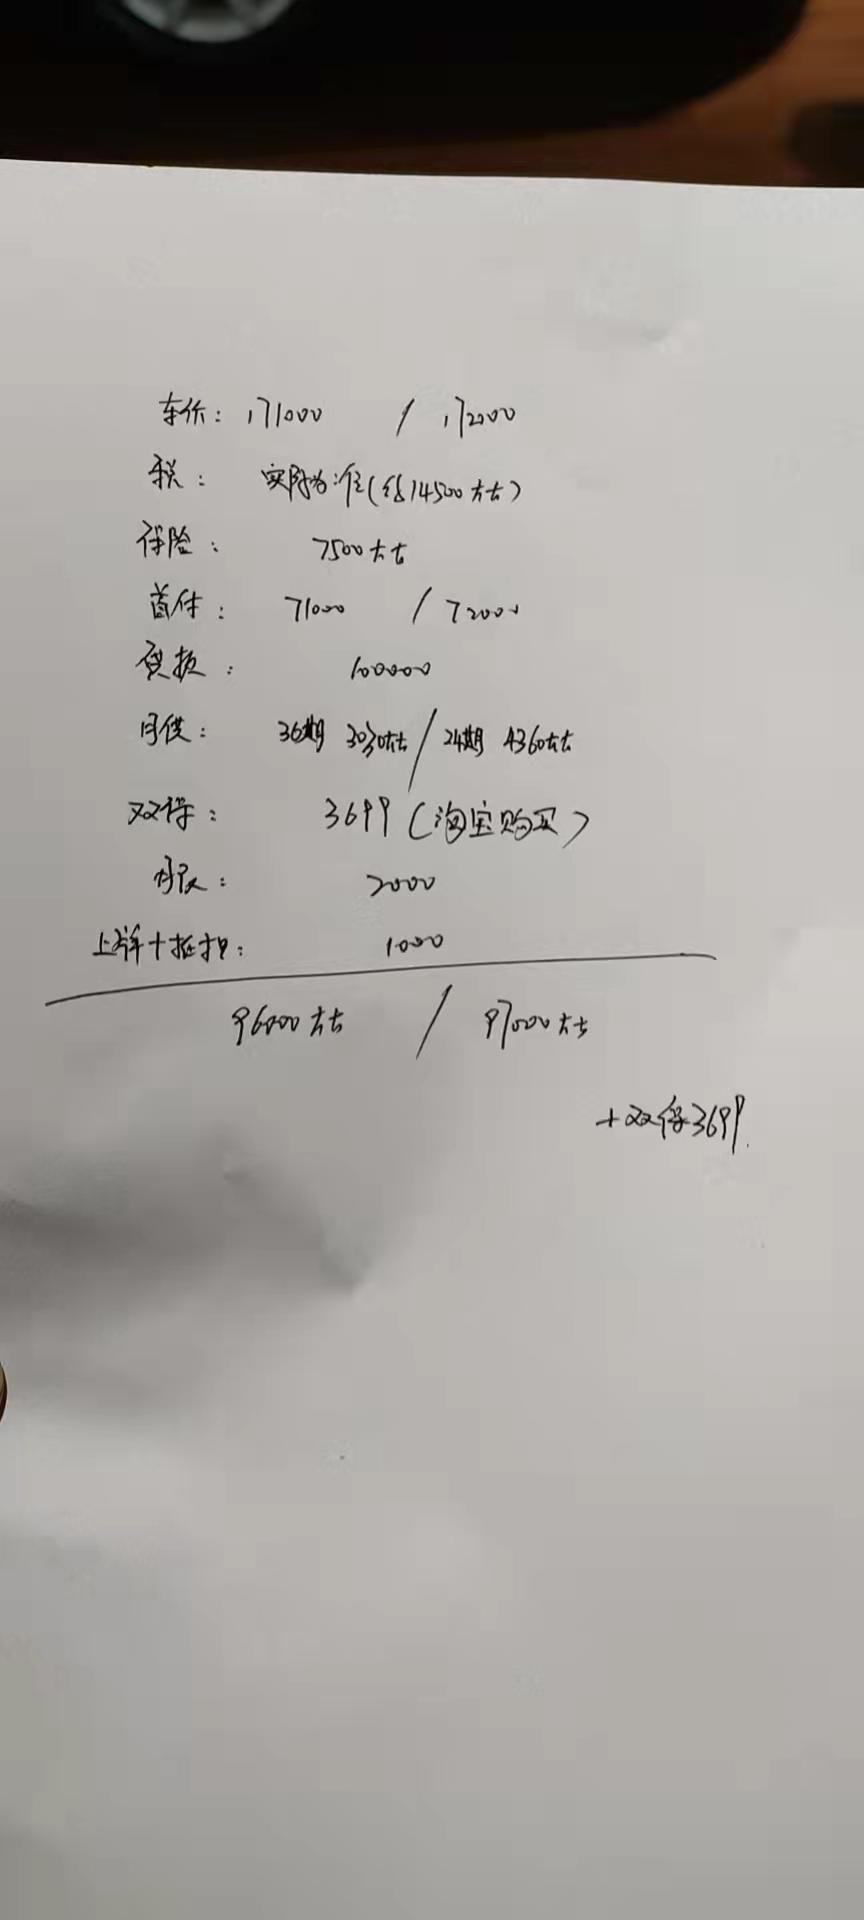 车价: 171000 / 172000
税: 实际为准(估14500左右)
保险: 7500左右
首付: 71000 / 72000
贷款: 100000
月供: 36期 3030左右 / 24期 4360左右
双保: 3699 (淘宝购买)
2000
上牌+抵押: 1000
96000左右 / 97000左右
+双保3699.